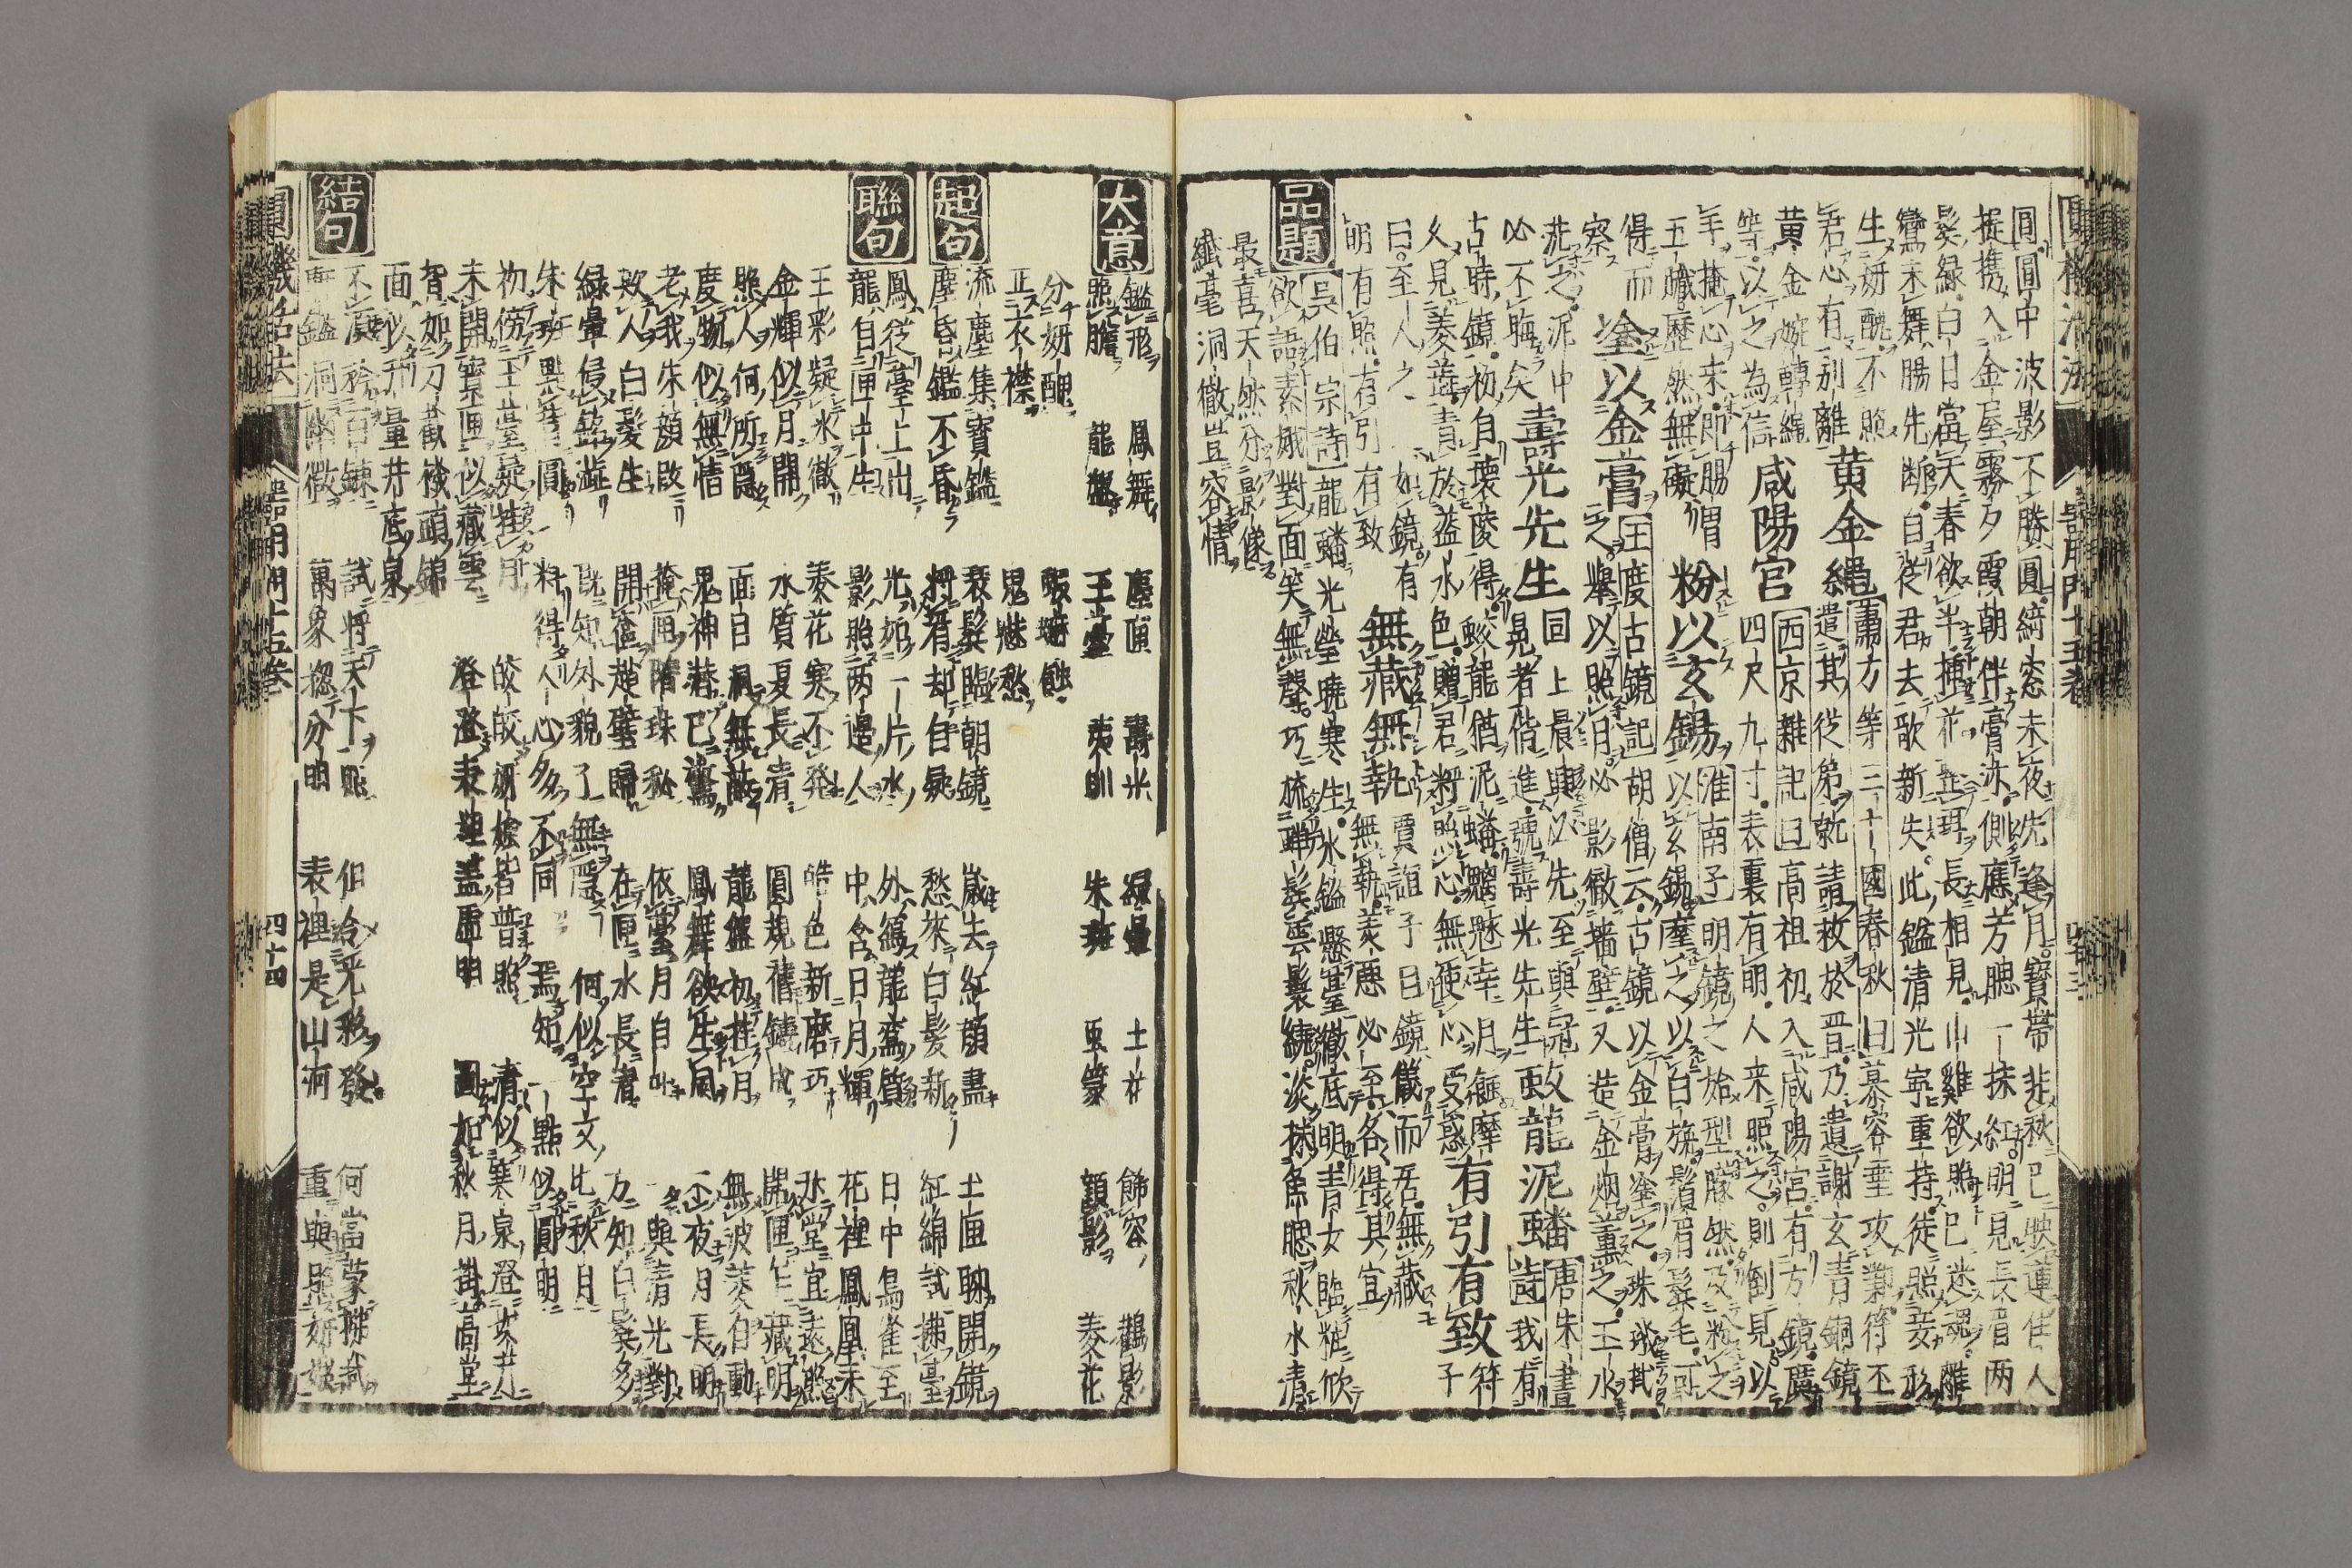 圓圓中波影不勝圓綺窓未夜先逢月寶帶非秋已映蓮佳人
提携入金屋霧夕霞朝伴膏沐側應芳聰一抹紅明見長眉兩
鬟綠白日當天春欲半插花並珥長相見山雞欲照已迷魂離
鸞未舞腸先斷自從君去歌新失此鑑清光寧重持徒照妾形
生妍醜不照
君心有別離
黄金繩
蕭方等三十國春秋曰慕容垂攻鄴符丕
遣其從弟就請救於晋乃遺謝玄青銅鏡
黄金婉轉繩
等以之為信
咸陽宮
西京雜記曰高祖初入咸陽宮有方鏡廣
四尺九寸表裏有明人来照之則倒見以
手掩心来即腸胃
五臟歷然無礙
粉以玄錫
淮南子明鏡之始型矇然及粉之
以玄錫摩之以白旃鬢眉髮毛可
得而
察
塗以金膏
王度古鏡記胡僧云古鏡以金膏塗之珠珱拭
之舉以照月必影徹墻壁又造金烟薰之玉水
洗之泥中
必不晦矣
壽光先生
同上晨興必先至與冠
晃者偕進號壽光先生
蛟龍泥蟠
唐朱晝
詩我有
古時鏡初自壞陵得蛟龍猶泥蟠魑魅幸月蝕摩
久見菱蕋青於藍水色贈君將照心無使心受惑
有引有致
符
子
曰至人之
如鏡有
明有照有引有致
無藏無執
賈誼子曰鏡儀而居無藏
無執美惡必至各得其宜
品題
吳伯宗詩龍蟠光瑩曉寒生氷鑑懸臺徹底明青女臨粧欣
欲語素娥對面笑無聲巧梳蟬鬢雲鬟繞淡抹魚腮秋水清
最喜天然分影像
纖毫洞徹豈容情
大意
鑑形 鳳舞 塵頭 壽光 土花 飾容 鵲影
照膽 龍盤 玉臺 朱斑 顔影 菱花
分妍醜 蝦蟆蝕
正衣襟 鬼魅愁
起句
流塵集寶鑑 衰鬢臨朝鏡 歲去紅顔盡 土匣聊開鏡
塵昏鑑不昏 將看却自疑 愁來白髮新 紅綿試拂臺
聯句
鳳從臺上出 光如一片水 外鴻龍鸞質 日中烏雀至
龍自匣中生 影照兩邊人 中含日月輝 花裡鳳凰来
玉彩凝氷徹 菱花寒不發 皓色新磨巧 氷堂宜遠照
金輝似月開 水質夏長清 圓規舊鑄成 開匣乍藏明
照人何所隱 面目洞無蔽 龍盤初挂月 無波菱自動
度物似無情 鬼神潜已驚 鳳舞欲生風 不夜月長明
老我朱顔改 掩匣隋珠秘 依臺月自 與清光對
欺人白髮生 開奩趙璧歸 在匣水長清 方知白髮多
綠暈侵銘澁 既知外貌了無隱 何似空文比秋月
朱斑與背圓 料得人心多不同 焉知一點似圓明
初傍玉臺疑挂月 皎皎妍媸皆普照 清似寒泉澄
未開寶匣似藏雲 澄澄表裡盡虛明 圓如秋月掛高堂
智如刀截機頭錦
面似升量井底泉
結句
不須矜百鍊 試將天下照 但令光彩發 何當蒙拂拭
鑑洞幽微 萬象摠分明 表裡是山河 重與照妍媸
器用門十五卷
四十四